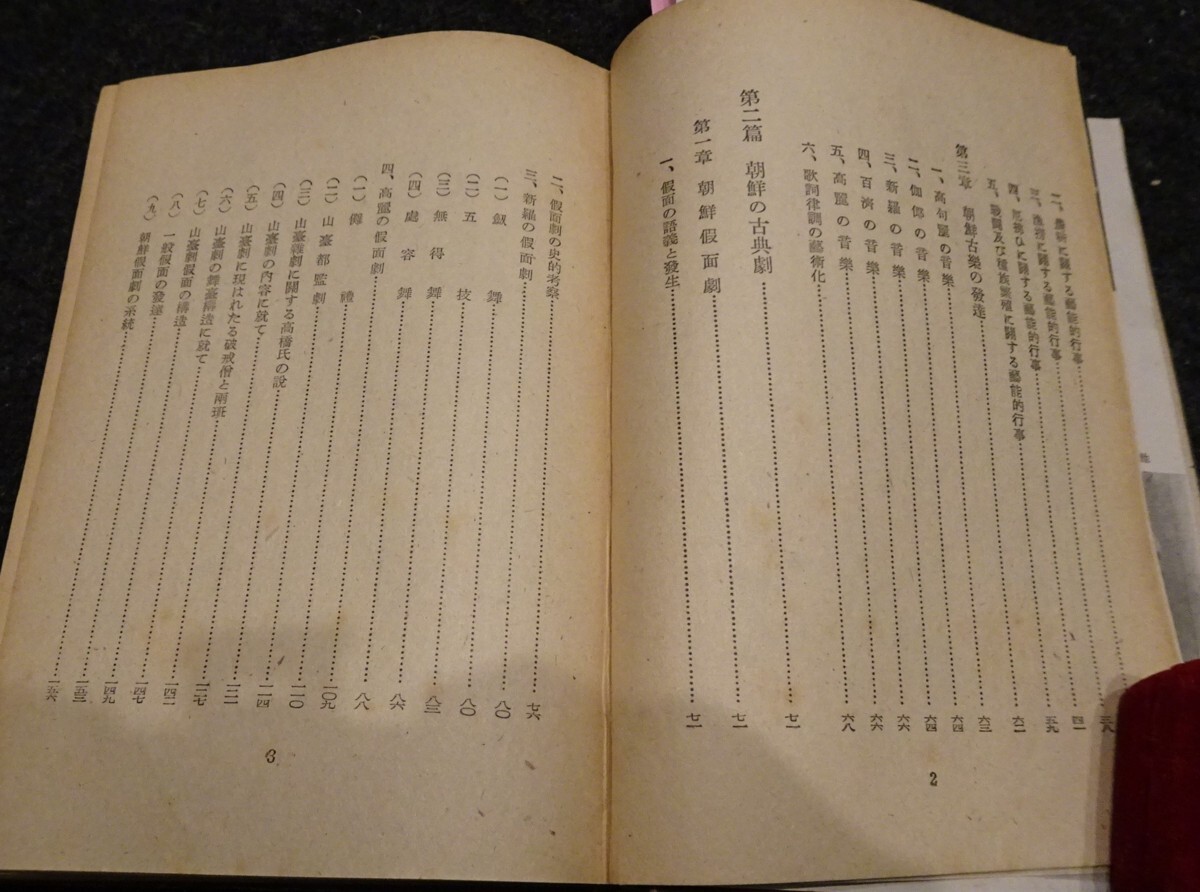 二、農耕に關する藝能的行事
三、漁撈に關する藝能的行事 三八
四、厄拂ひに關する藝能的行事 四一
五、戰鬪及び種族繁殖に關する藝能的行事 五九
第三章 朝鮮古樂の發達 六二
一、高句麗の音樂 六三
二、伽倻の音樂 六四
三、新羅の音樂 六四
四、百濟の音樂 六六
五、高麗の音樂 六六
六、歌詞律調の藝術化 六八
第二篇 朝鮮の古典劇 七一
第一章 朝鮮假面劇 七一
一、假面の語義と發生 七一
2
二、假面劇の史的考察 七六
三、新羅の假面劇 八〇
(一) 劍舞 八〇
(二) 五技 八三
(三) 無得舞 八六
(四) 處容舞 八八
四、高麗の假面劇 一〇九
(一) 儺禮 一一〇
(二) 山臺都監劇 一一四
(三) 山臺雜劇に關する高橋氏の說 一二一
(四) 山臺劇の內容に就て 一二七
(五) 山臺劇に現はれたる破戒僧と兩班 一四二
(六) 山臺劇の舞臺構造に就て 一四七
(七) 山臺劇假面の構造 一四九
(八) 一般假面の發達 一五三
(九) 朝鮮假面劇の系統 一五六
3